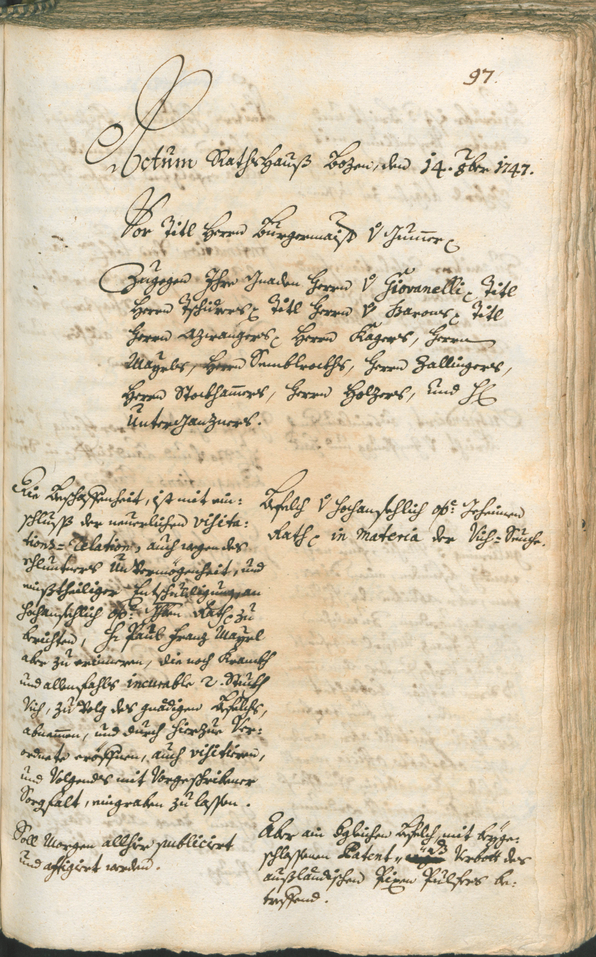 97.
Actum Rathshauß Bozen, den 14. 8ber 1747.
Vor Titl Herrn Burgermaist: v Gummer
Zugegen Ihre Gnaden Herrn v Giovanelli, Titl
Herrn Tschiderers Titl Herrn v Harrwis, Titl
Herrn Azwangers, Herrn Kagers, Herrn
Mayrls, Herrn Semblrockhs, Herrn Zallingers,
Herrn Stockhamers, Herrn Holzers, und H:
Unterganzners.
Die Beschaffenheit, ist mit ein-
schlusß der neuerlichen visita-
tions-Relation, auch wegen des
Schlunters Unvermögenheit, und
mitthailiger Entschuldigung, an
Hochansehlich o:ö: Rath zu
berichten, H: Paul Franz Mayrl
aber zu erinneren, die noch Krankh
und allenfahls incurable 2. Stuckh
Vich, zu Volg des gnädigen Befelchs,
abnemen, und durch hierzue Ver-
ordnete eröffnen, auch visitieren,
und Volgends mit Vorgeschribner
Sorgfalt, eingraben zu lassen.
Befelch v Hochansehlich o:ö: Geheimen
Rath in materia der Vich-Seuche.
Soll Morgen allhier publicirt
und affigirt werden.
Aber ain dgleichen Befelch, mit beyge-
schlossenen Patent, Verbott des
außländischen Pixen Pulfers be-
treffend.